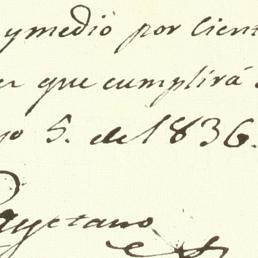 y medio por Cient
que cumplirá
5. de 1836.
Cayetano